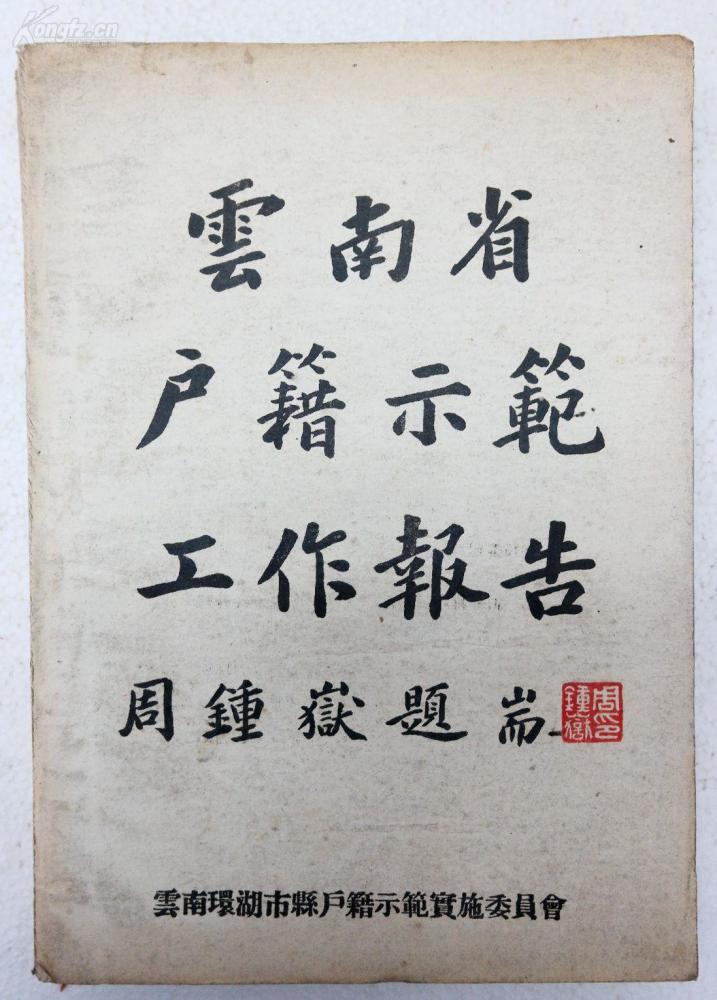 Kongfz.cn
雲南省
户籍示範
工作報告
周鍾嶽題耑
周鍾嶽印
雲南環湖市縣戶籍示範實施委員會